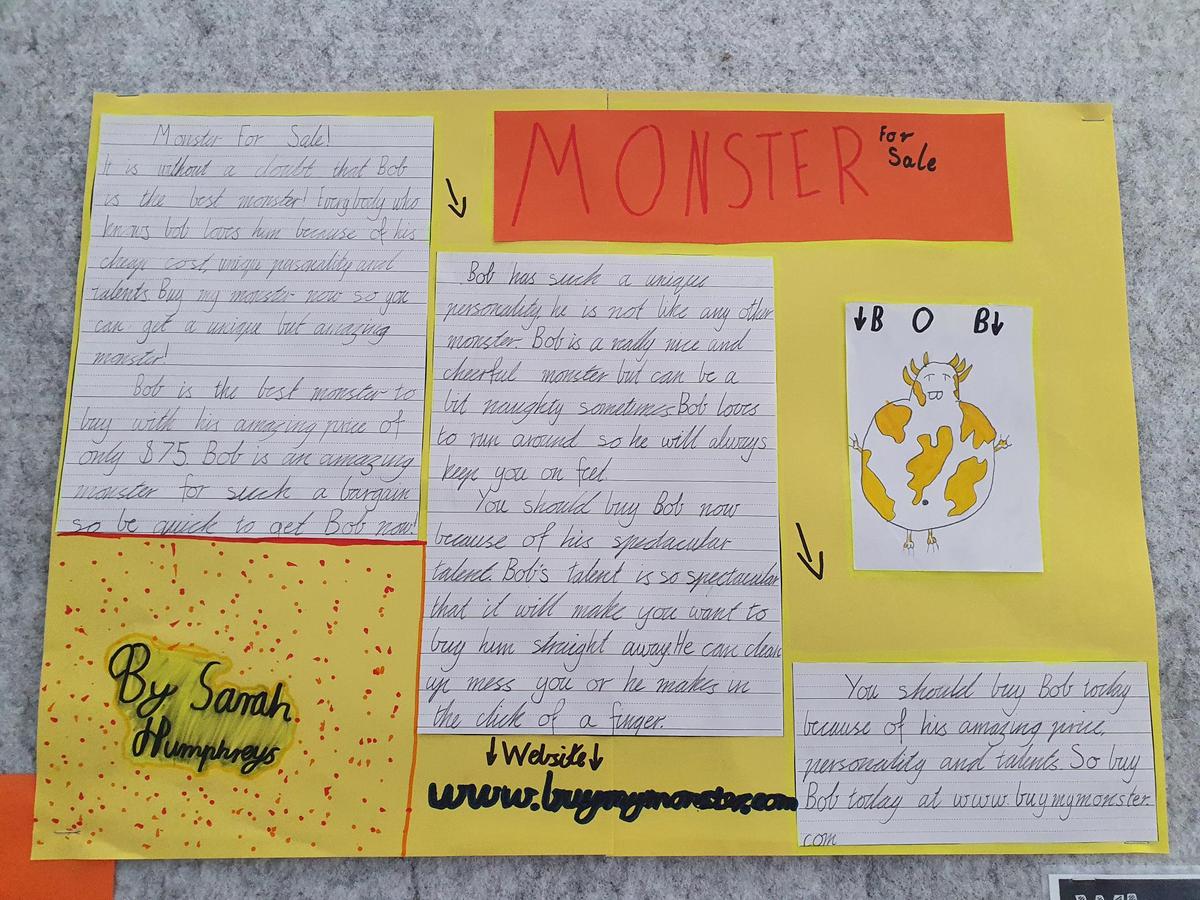 MONSTER For
Sale
Monster For Sale!
It is without a doubt that Bob
is the best monster! Everybody who
knows bob loves him because of his
cheap cost, unique personality and
talents. Buy my monster now so you
can get a unique but amazing
monster!
Bob is the best monster to
buy with his amazing price of
only $75. Bob is an amazing
monster for such a bargain
so be quick to get Bob now!
Bob has such a unique
personality he is not like any other
monster. Bob is a really nice and
cheerful monster but can be a
bit naughty sometimes. Bob loves
to run around so he will always
keep you on feet.
You should buy Bob now
because of his spectacular
talent. Bob's talent is so spectacular
that it will make you want to
buy him straight away. He can clean
up mess you or he makes in
the click of a finger.
↓B O B↓
You should buy Bob today
because of his amazing price,
personality and talents. So buy
Bob today at www.buymymonster.
com
By Sarah
Humphreys
↓Website↓
www.buymymonster.com